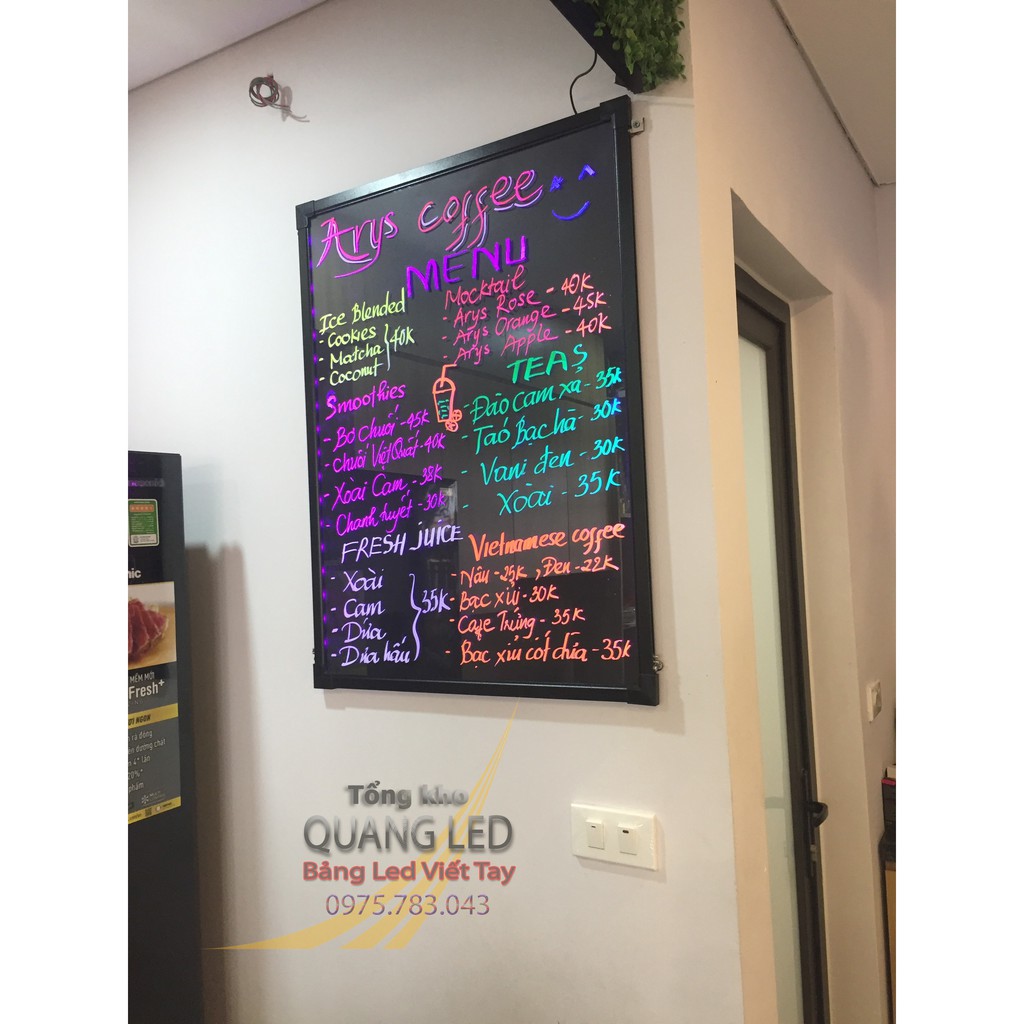 Arys coffee
MENU
Ice Blended
- Cookies
- Matcha
- Coconut
40k
Mocktail
- Arys Rose - 40K
- Arys Orange - 45K
- Arys Apple - 40K
Smoothies
- Bơ chuối - 45K
- chuối Việt Quất - 40K
- Xoài Cam - 38K
- Chanh tuyết - 30K
TEAS
- Đào cam xả - 35k
- Táo Bạc hà - 30k
- Vani đen - 30k
- Xoài - 35K
FRESH JUICE
- Xoài
- Cam
- Dứa
- Dưa hấu
35K
Vietnamese coffee
- Nâu - 25K, Đen - 22K
- Bạc xỉu - 30K
- Cafe Trứng - 35K
- Bạc xỉu cốt dừa - 35K
nic
MỀM MỚI
Fresh+
Tổng kho
QUANG LED
Bảng Led Viết Tay
0975.783.043